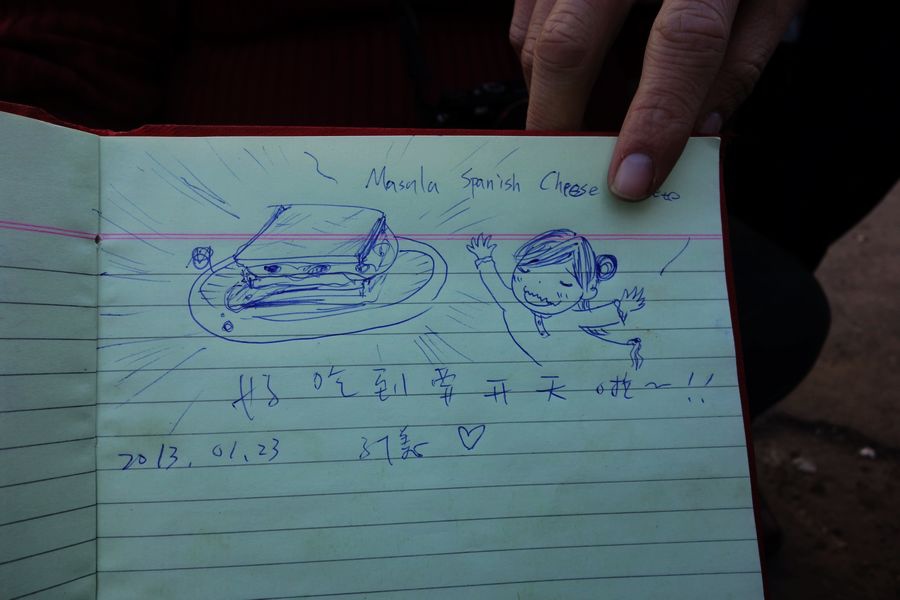 Masala Spanish Cheese
好吃到要升天啦~!!
2013.01.23